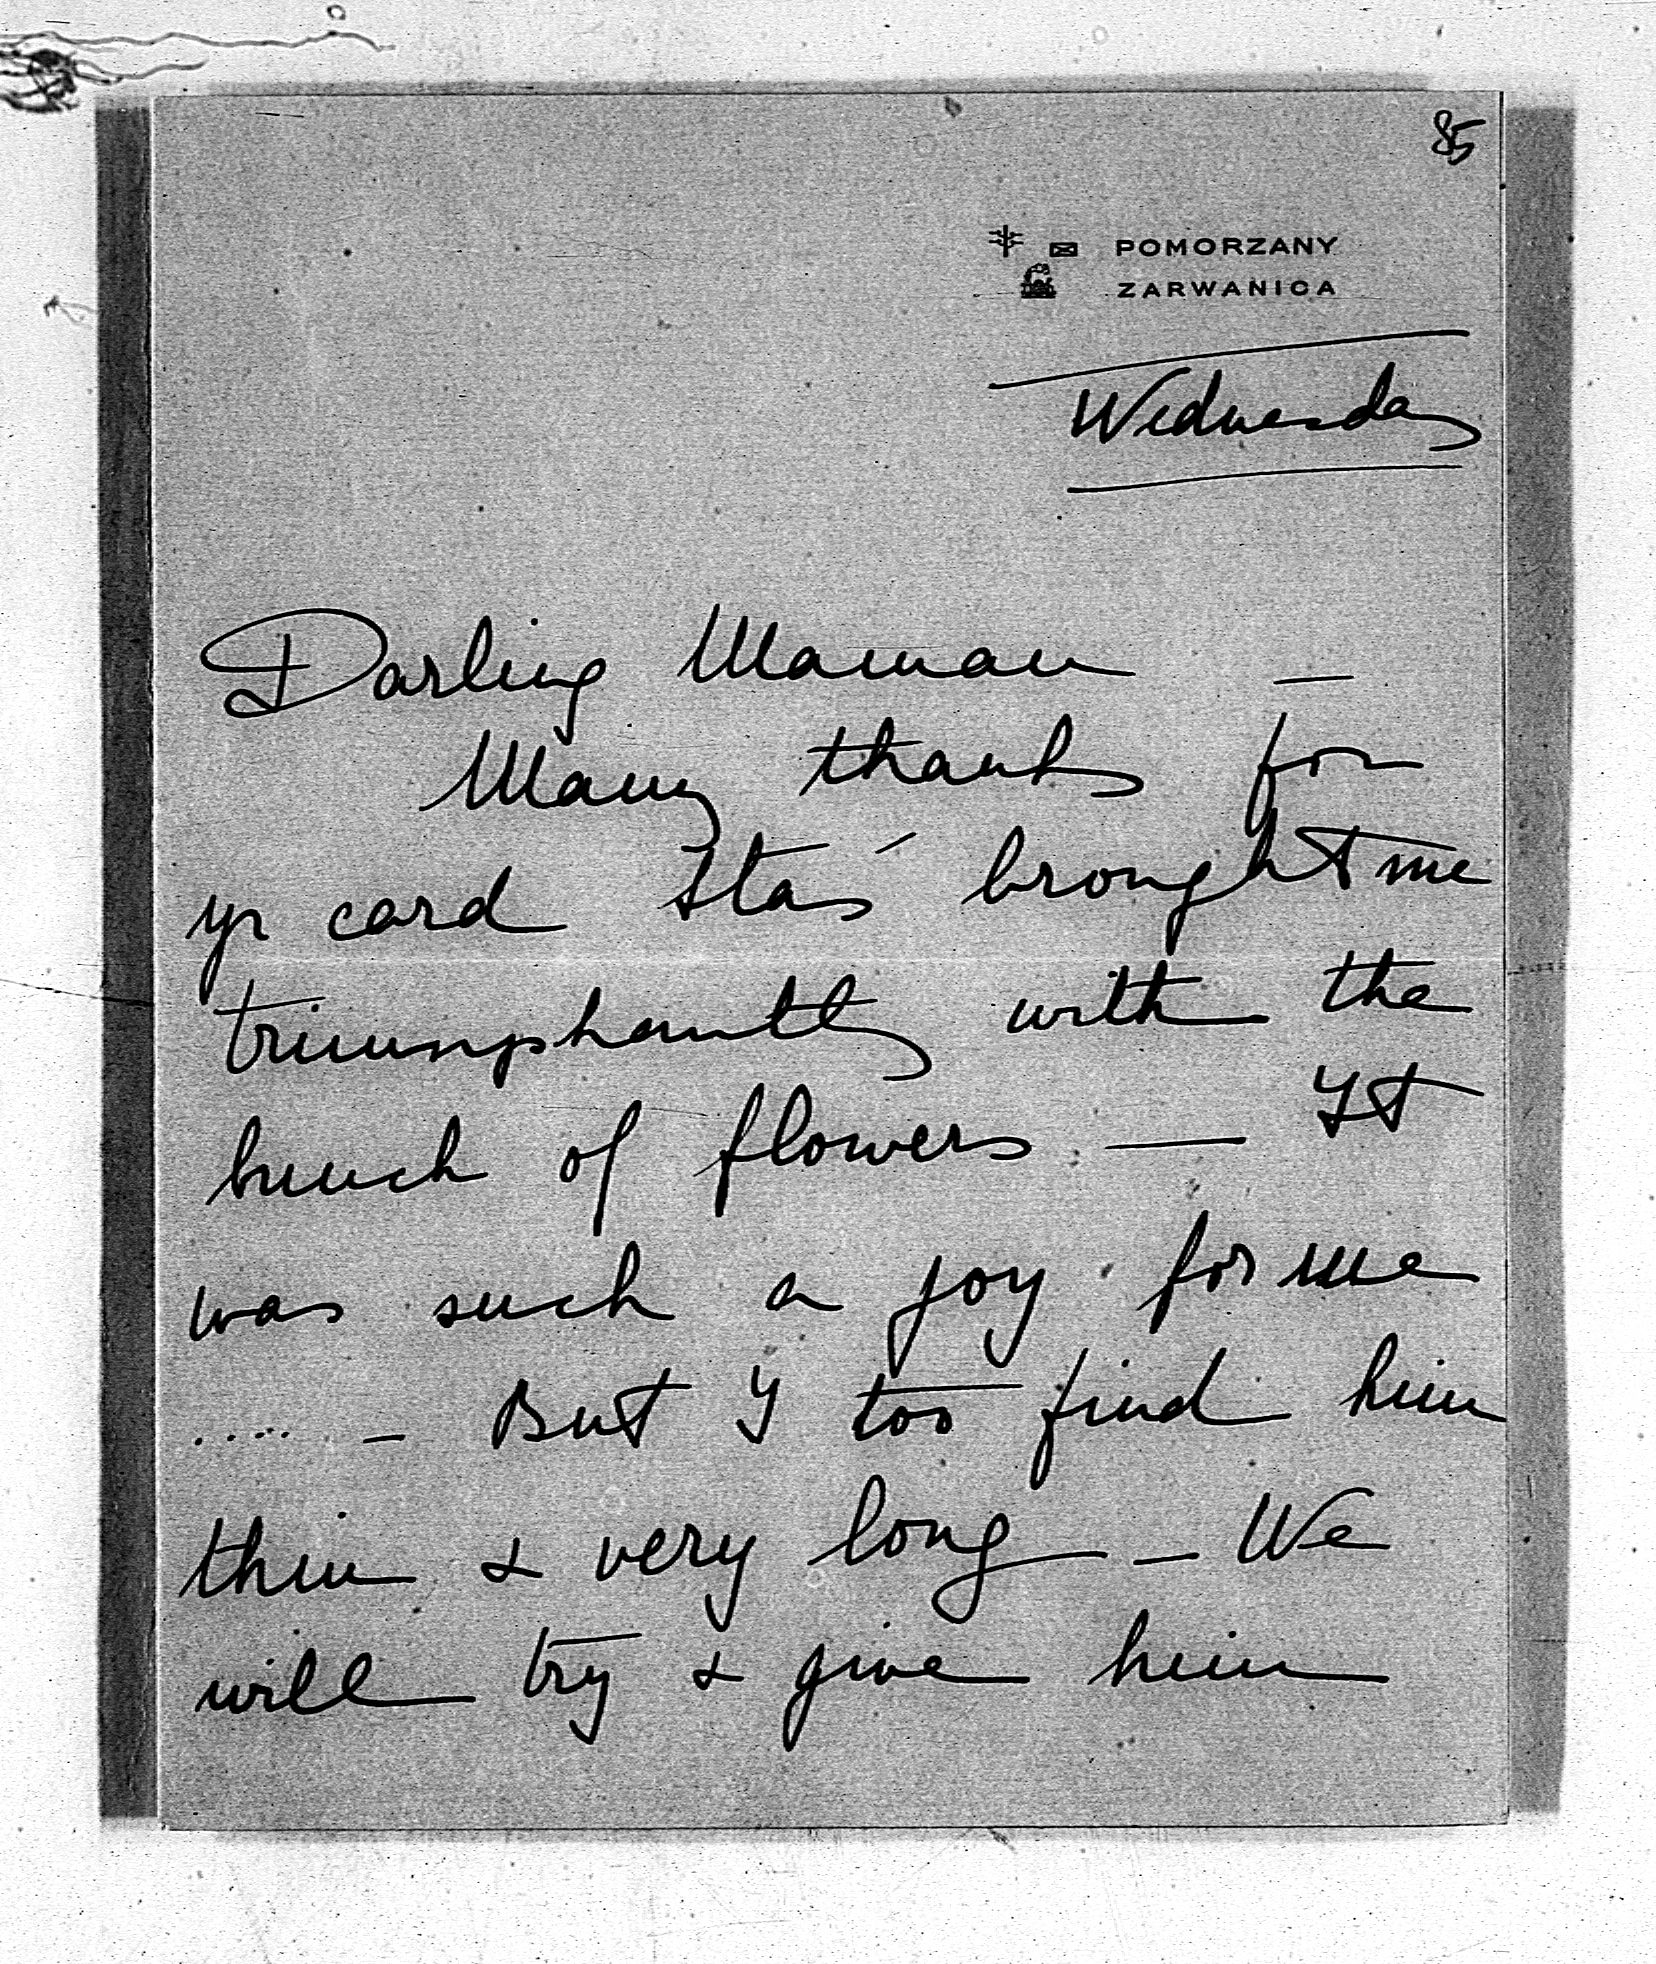 85
POMORZANY
ZARWANICA
Wednesday
Darling Maman —
Many thanks for
yr card Staś brought me
triumphantly with the
bunch of flowers — It
was such a joy for me
..... – But I too find him
thin & very long — We
will try & give him